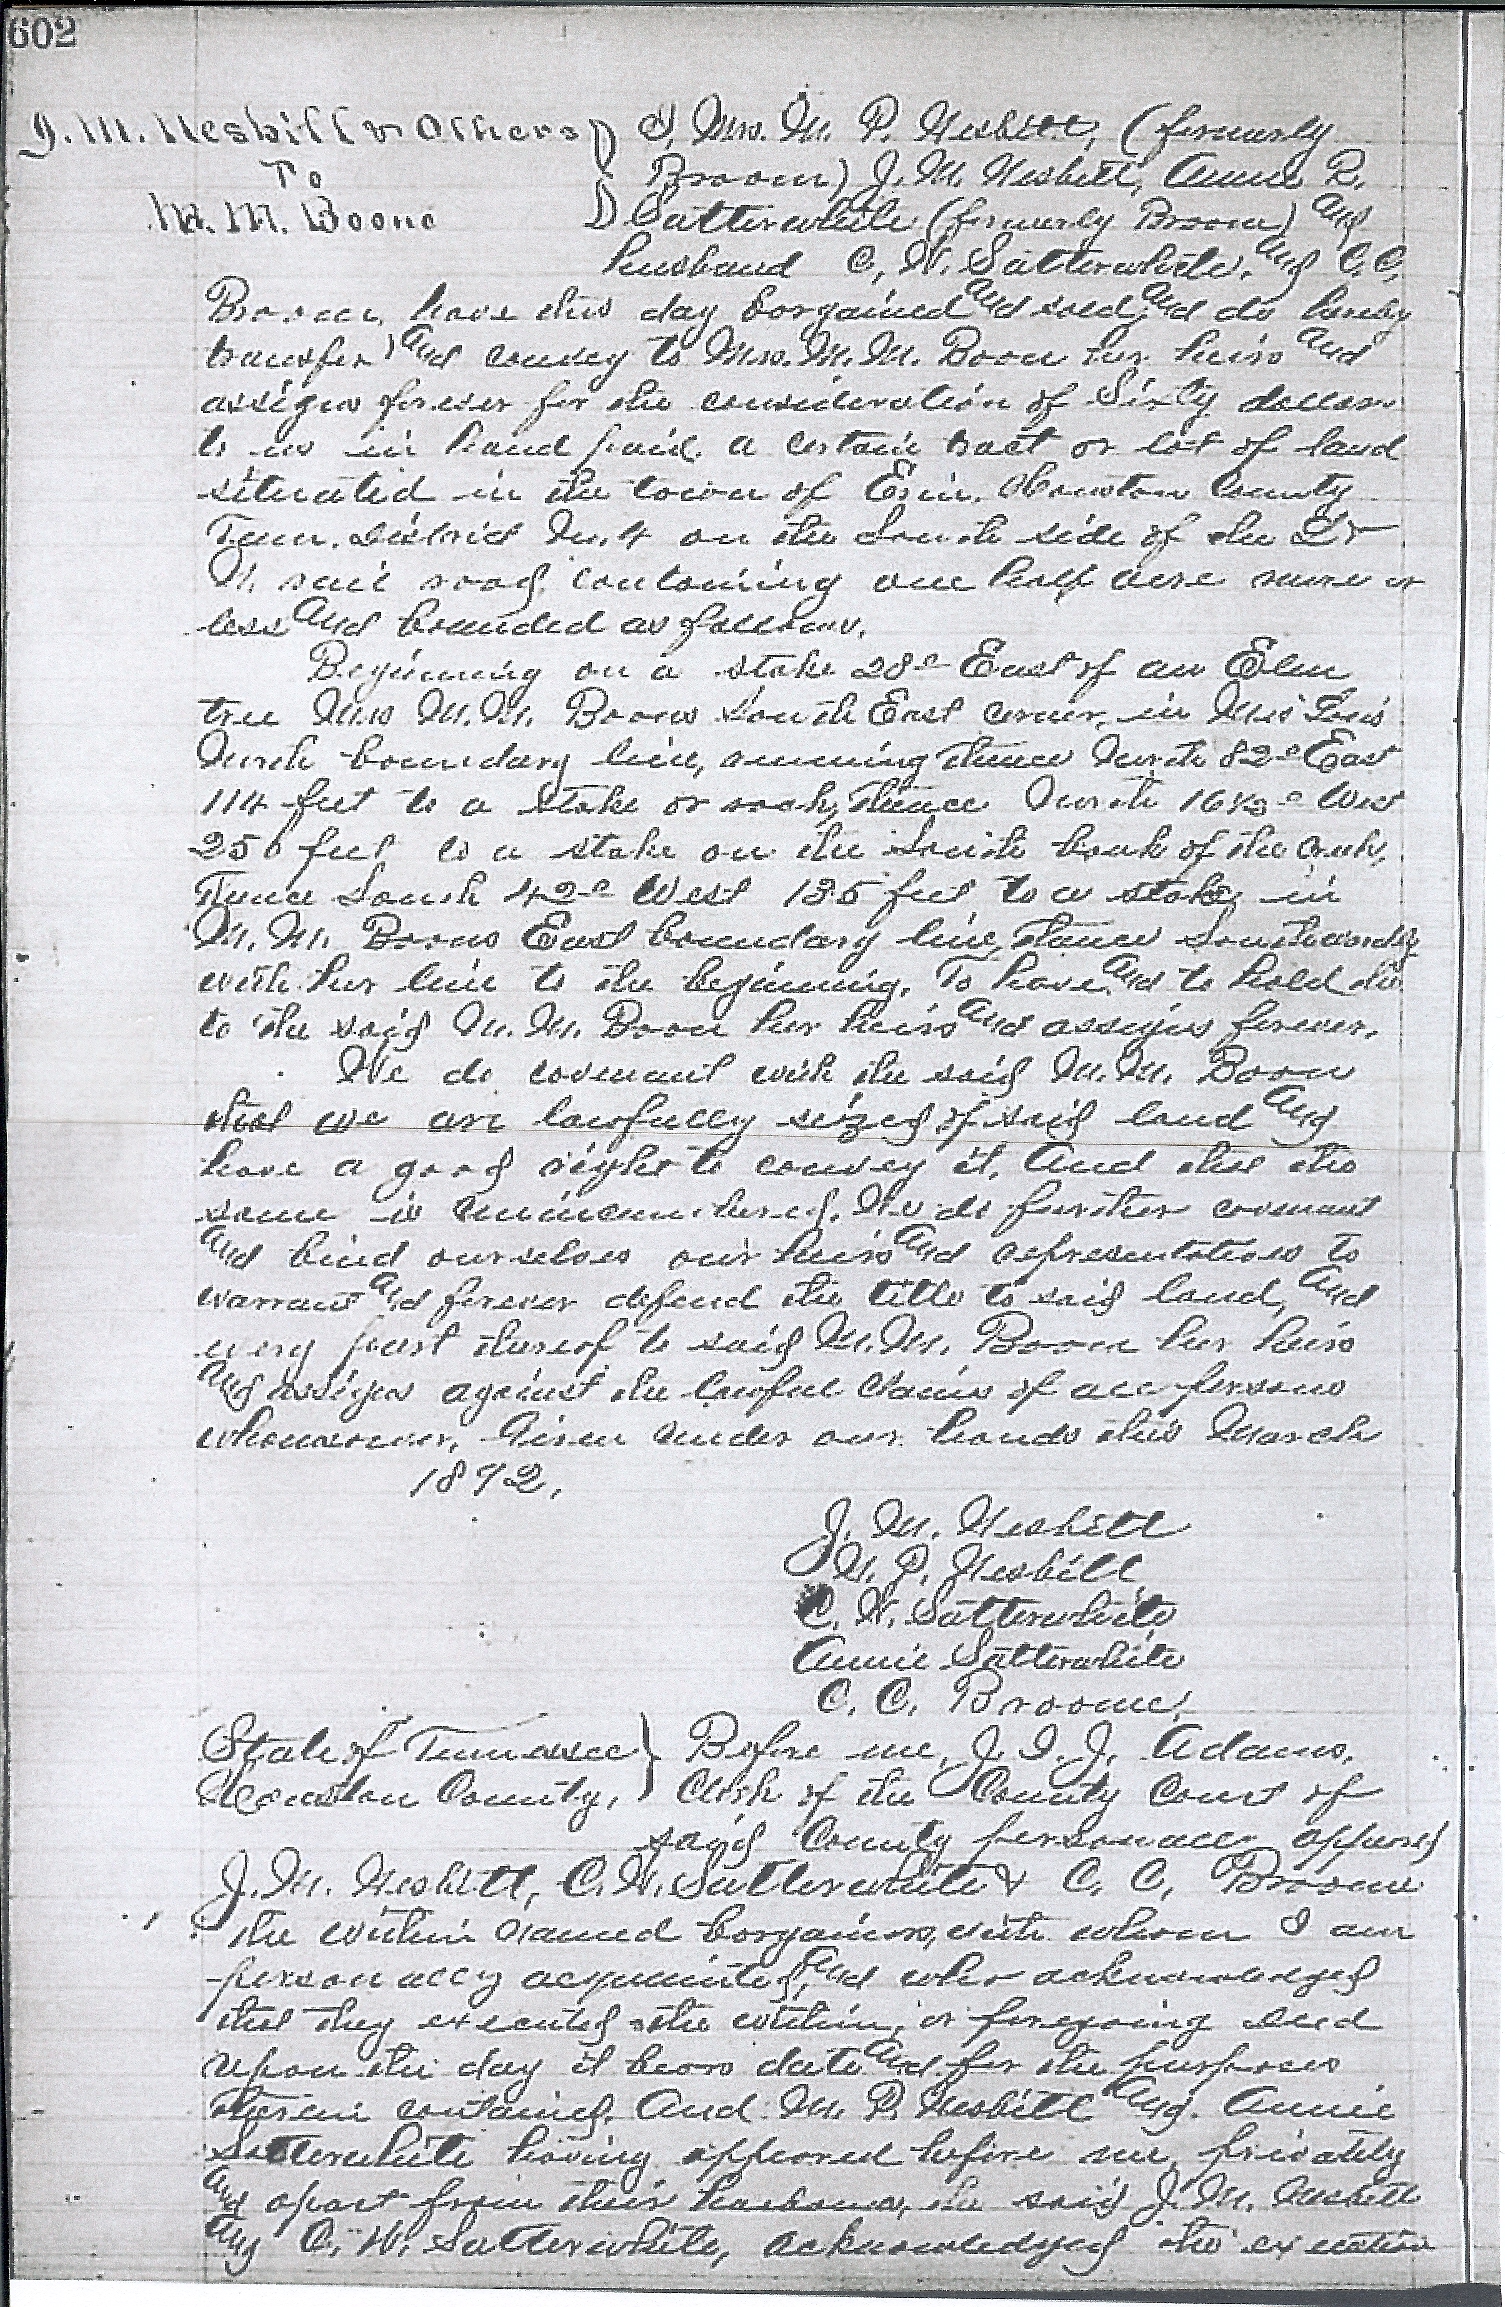 602
J. M. Nesbitt & Others
To
M. M. Boone
I, Mrs. M. P. Nesbitt, (formerly
Broom) J. M. Nesbitt, Annie R.
Satterwhite (formerly Broom) and
husband C. W. Satterwhite, and C. C.
Broom, have this day bargained and sold, and do hereby
transfer and convey to Mrs. M. M. Boon her heirs and
assigns forever for the consideration of Sixty dollars
to us in hand paid, a certain tract or lot of land
situated in the town of Erin, Houston County
Tenn. District No. 4 on the South side of the L &
N. rail road, containing one half acre more or
less and bounded as follows.
Beginning on a stake 28° East of an Elm
tree Mrs M. M. Boons South East corner, in
North boundary line, running thence North 82° East
114 feet to a stake or rock, thence North 16½° West
250 feet to a stake on the South bank of the creek,
Thence South 42° West 135 feet to a stake in
M. M. Boons East boundary line, thence Southwardly
with her line to the beginning. To have and to hold the
to the said M. M. Boon her heirs and assigns forever.
We do covenant with the said M. M. Boon
that we are lawfully seized of said land and
have a good right to convey it, And that the
same is unincumbered. We do further covenant
and bind ourselves our heirs and representatives to
warrant and forever defend the title to said land, and
every part thereof to said M. M. Boon her heirs
and assigns against the lawful claims of all persons
whomsoever. Given under our hands this March
1892.
J. M. Nesbitt
M. P. Nesbitt
C. W. Satterwhite
Annie Satterwhite
C. C. Broome.
State of Tennessee) Before me, J. I. J. Adams,
Houston County,) Clerk of the County Court of
said County personally appeared
J. M. Nesbitt, C. W. Satterwhite & C. C. Broome
the within named bargainors, with whom I am
personally acquainted, and who acknowledged
that they executed the within, or foregoing deed
upon the day it bears date and for the purposes
therein contained. And M. P. Nesbitt and Annie
Satterwhite having appeared before me privately
and apart from their husbands, the said J. M. Nesbitt
and C. W. Satterwhite, acknowledged the execution